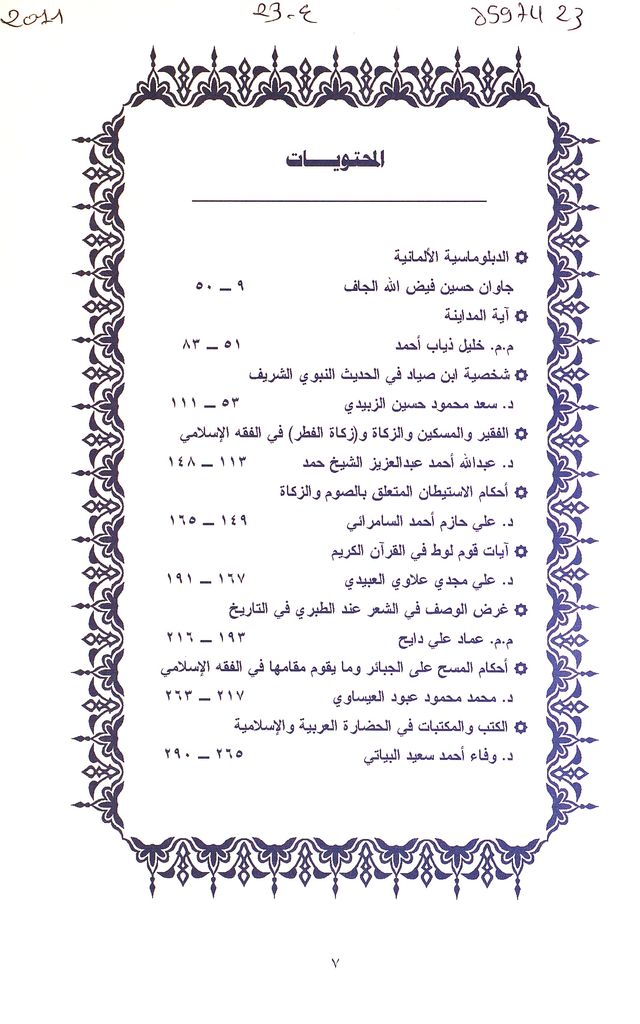 2011 23.4 25974 23
المحتويات
الدبلوماسية الألمانية
جاوان حسين فيض الله الجاف ٩ ــ ٥٠
آية المداينة
م.م. خليل ذياب أحمد ٥١ ــ ٨٣
شخصية ابن صياد في الحديث النبوي الشريف
د. سعد محمود حسين الزبيدي ٥٣ ــ ١١١
الفقير والمسكين والزكاة و(زكاة الفطر) في الفقه الإسلامي
د. عبدالله أحمد عبدالعزيز الشيخ حمد ١١٣ ــ ١٤٨
أحكام الاستيطان المتعلق بالصوم والزكاة
د. علي حازم أحمد السامرائي ١٤٩ ــ ١٦٥
آيات قوم لوط في القرآن الكريم
د. علي مجدي علاوي العبيدي ١٦٧ ــ ١٩١
غرض الوصف في الشعر عند الطبري في التاريخ
م.م. عماد علي دايح ١٩٣ ــ ٢١٦
أحكام المسح على الجبائر وما يقوم مقامها في الفقه الإسلامي
د. محمد محمود عبود العيساوي ٢١٧ ــ ٢٦٣
الكتب والمكتبات في الحضارة العربية والإسلامية
د. وفاء أحمد سعيد البياتي ٢٦٥ ــ ٢٩٠
٧